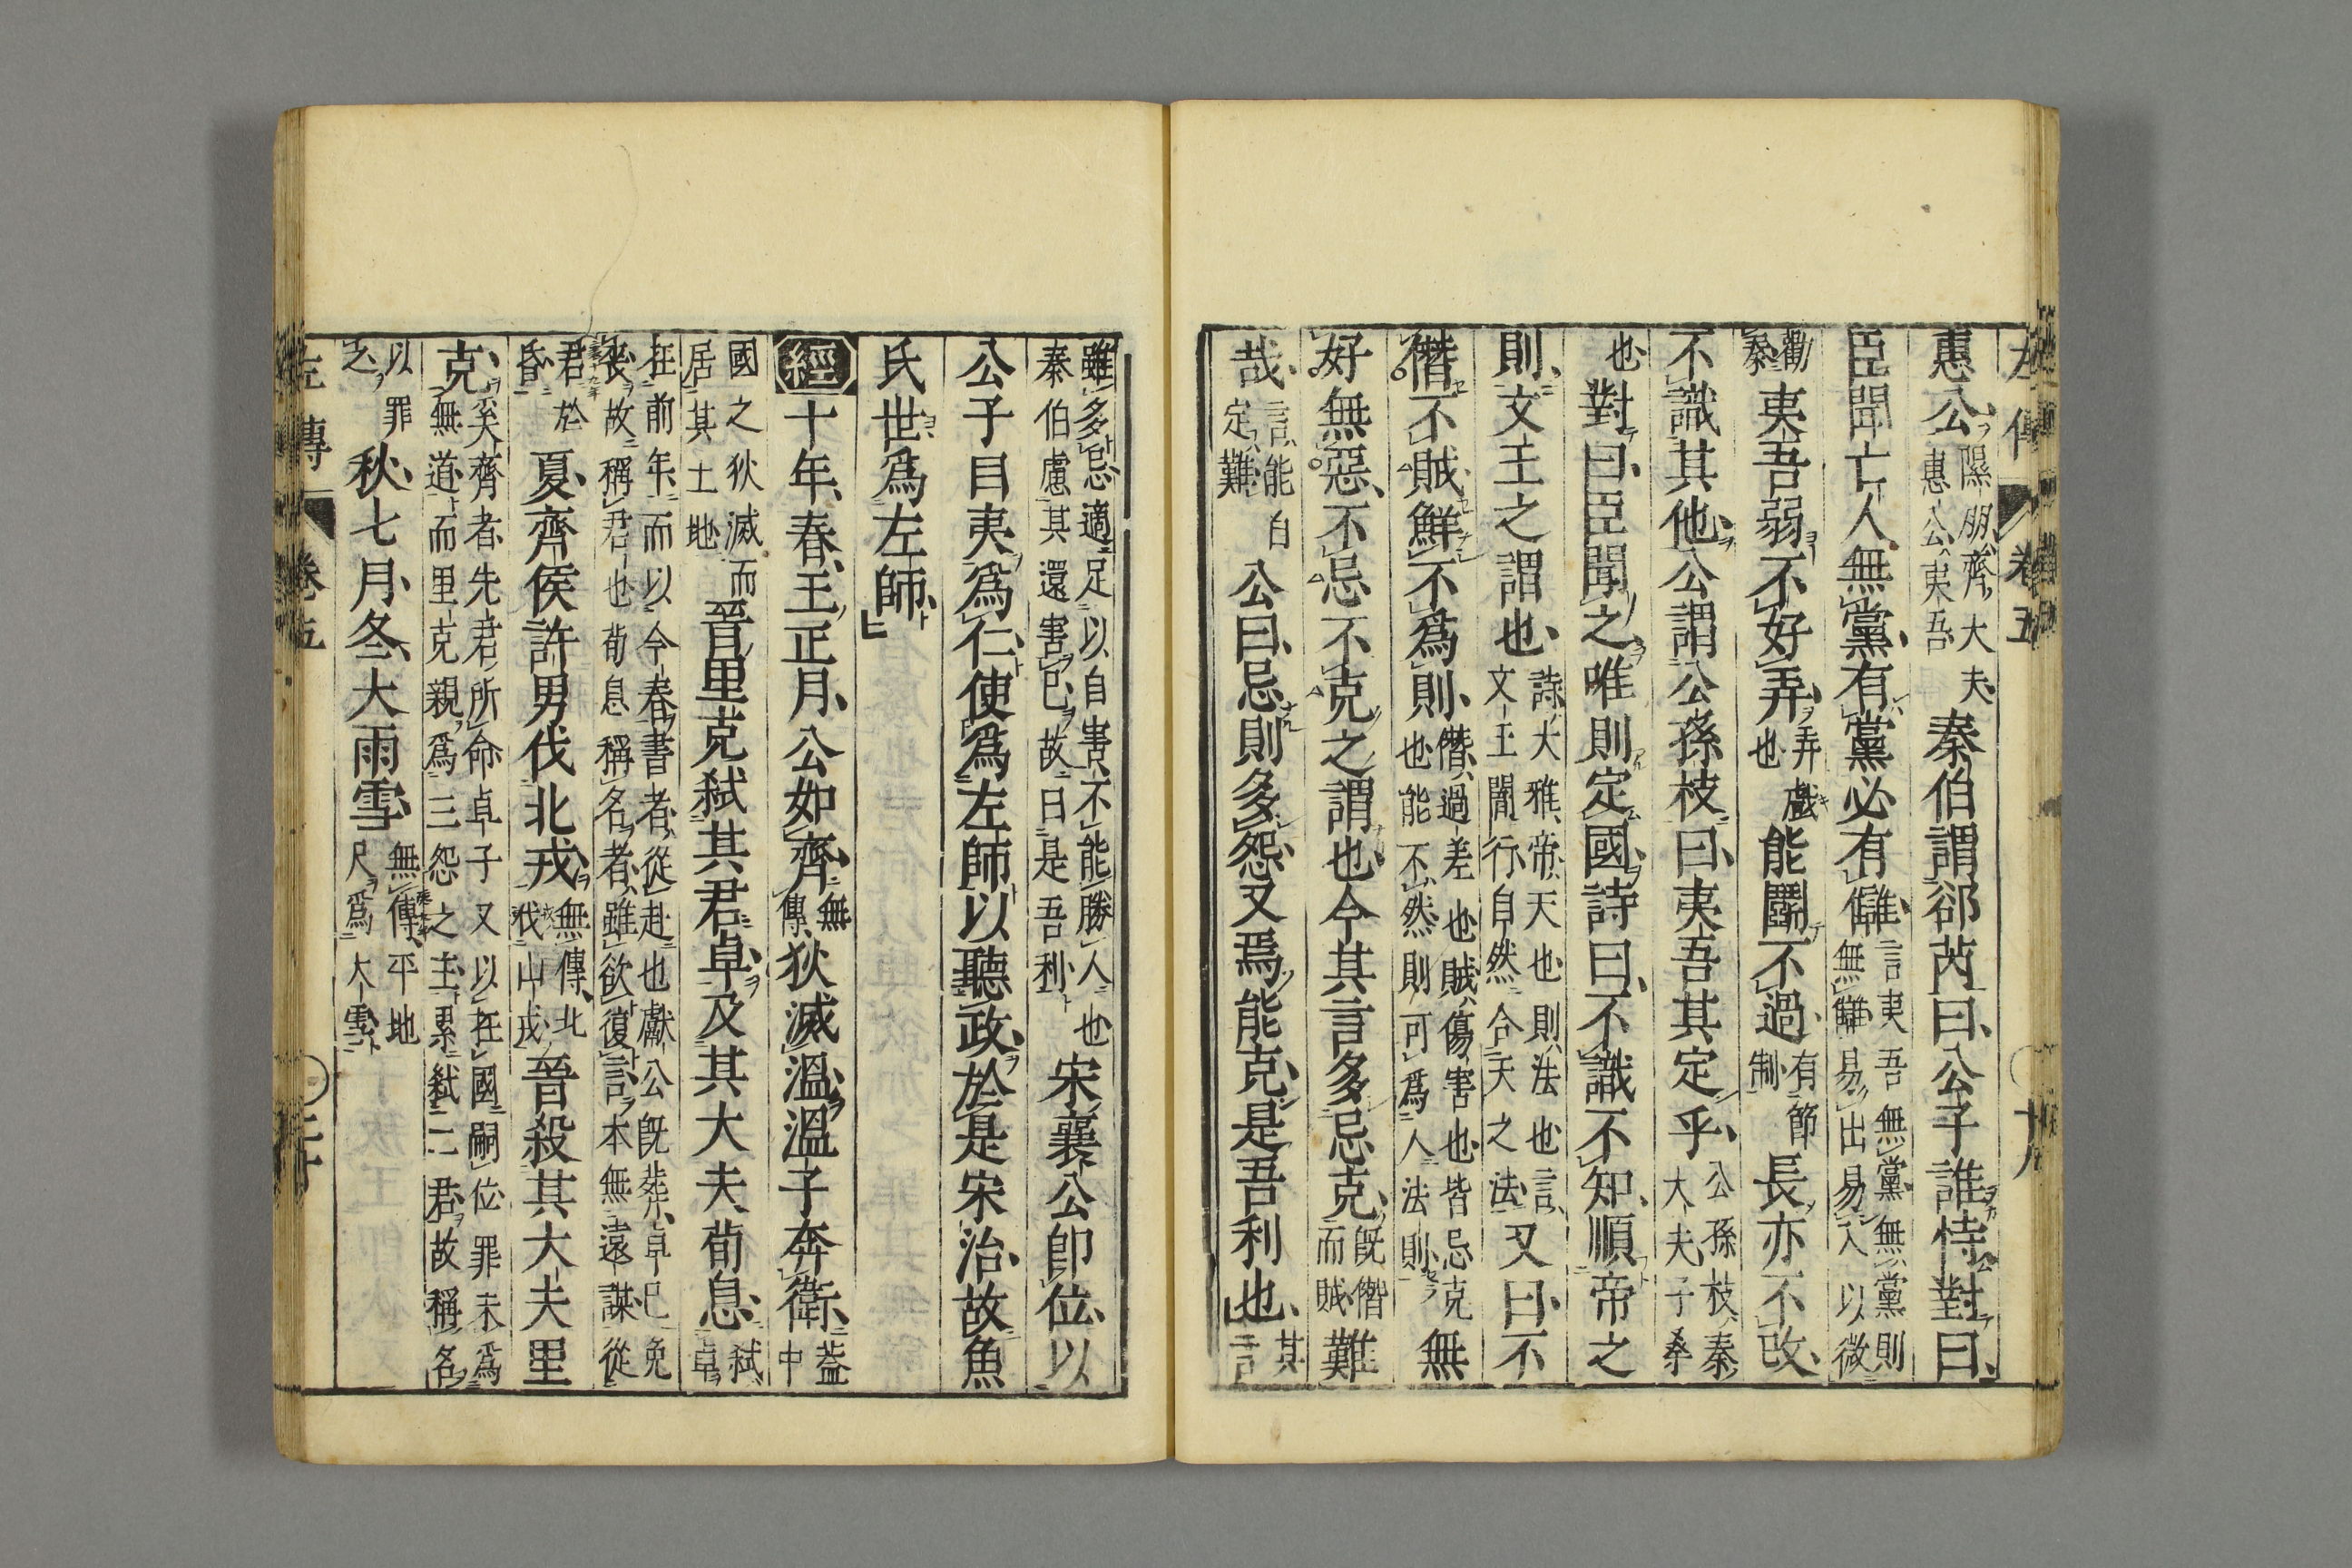 左傳 卷五 十九
惠公隰朋齊大夫惠公夷吾秦伯謂郤芮曰公子誰恃對曰
臣聞亡人無黨有黨必有讎言夷吾無黨無黨則無讎易出易入以微
勸秦夷吾弱不好弄弄戲也能鬭不過有節制長亦不改
不識其他公謂公孫枝曰夷吾其定乎公孫枝秦大夫子桑
也對曰臣聞之唯則定國詩曰不識不知順帝之
則文王之謂也詩大雅帝天也則法也言文王闇行自然合天之法又曰不
僭不賊鮮不爲則僭過差也賊傷害也皆忌克也能不然則可爲人法則無
好無惡不忌不克之謂也今其言多忌克既僭而賊難
哉言能自定難公曰忌則多怨又焉能克是吾利也其言
雖多忌適足以自害不能勝人也秦伯慮其還害已故曰是吾利宋襄公卽位以
公子目夷爲仁使爲左師以聽政於是宋治故魚
氏世爲左師
經十年春王正月公如齊無傳狄滅溫溫子奔衞蓋中
國之狄滅而居其土地晉里克弑其君卓及其大夫荀息弑卓
在前年而以今春書者從赴也獻公既葬卓已免喪故稱君也荀息稱名者雖欲復言本無遠謀從
君於昏夏齊侯許男伐北戎無傳北戎山戎晉殺其大夫里
克奚齊者先君所命卓子又以在國嗣位罪未爲無道而里克親爲三怨之主累弑二君故稱名
以罪之秋七月冬大雨雪無傳平地尺爲大雪
左傳 卷五 二十